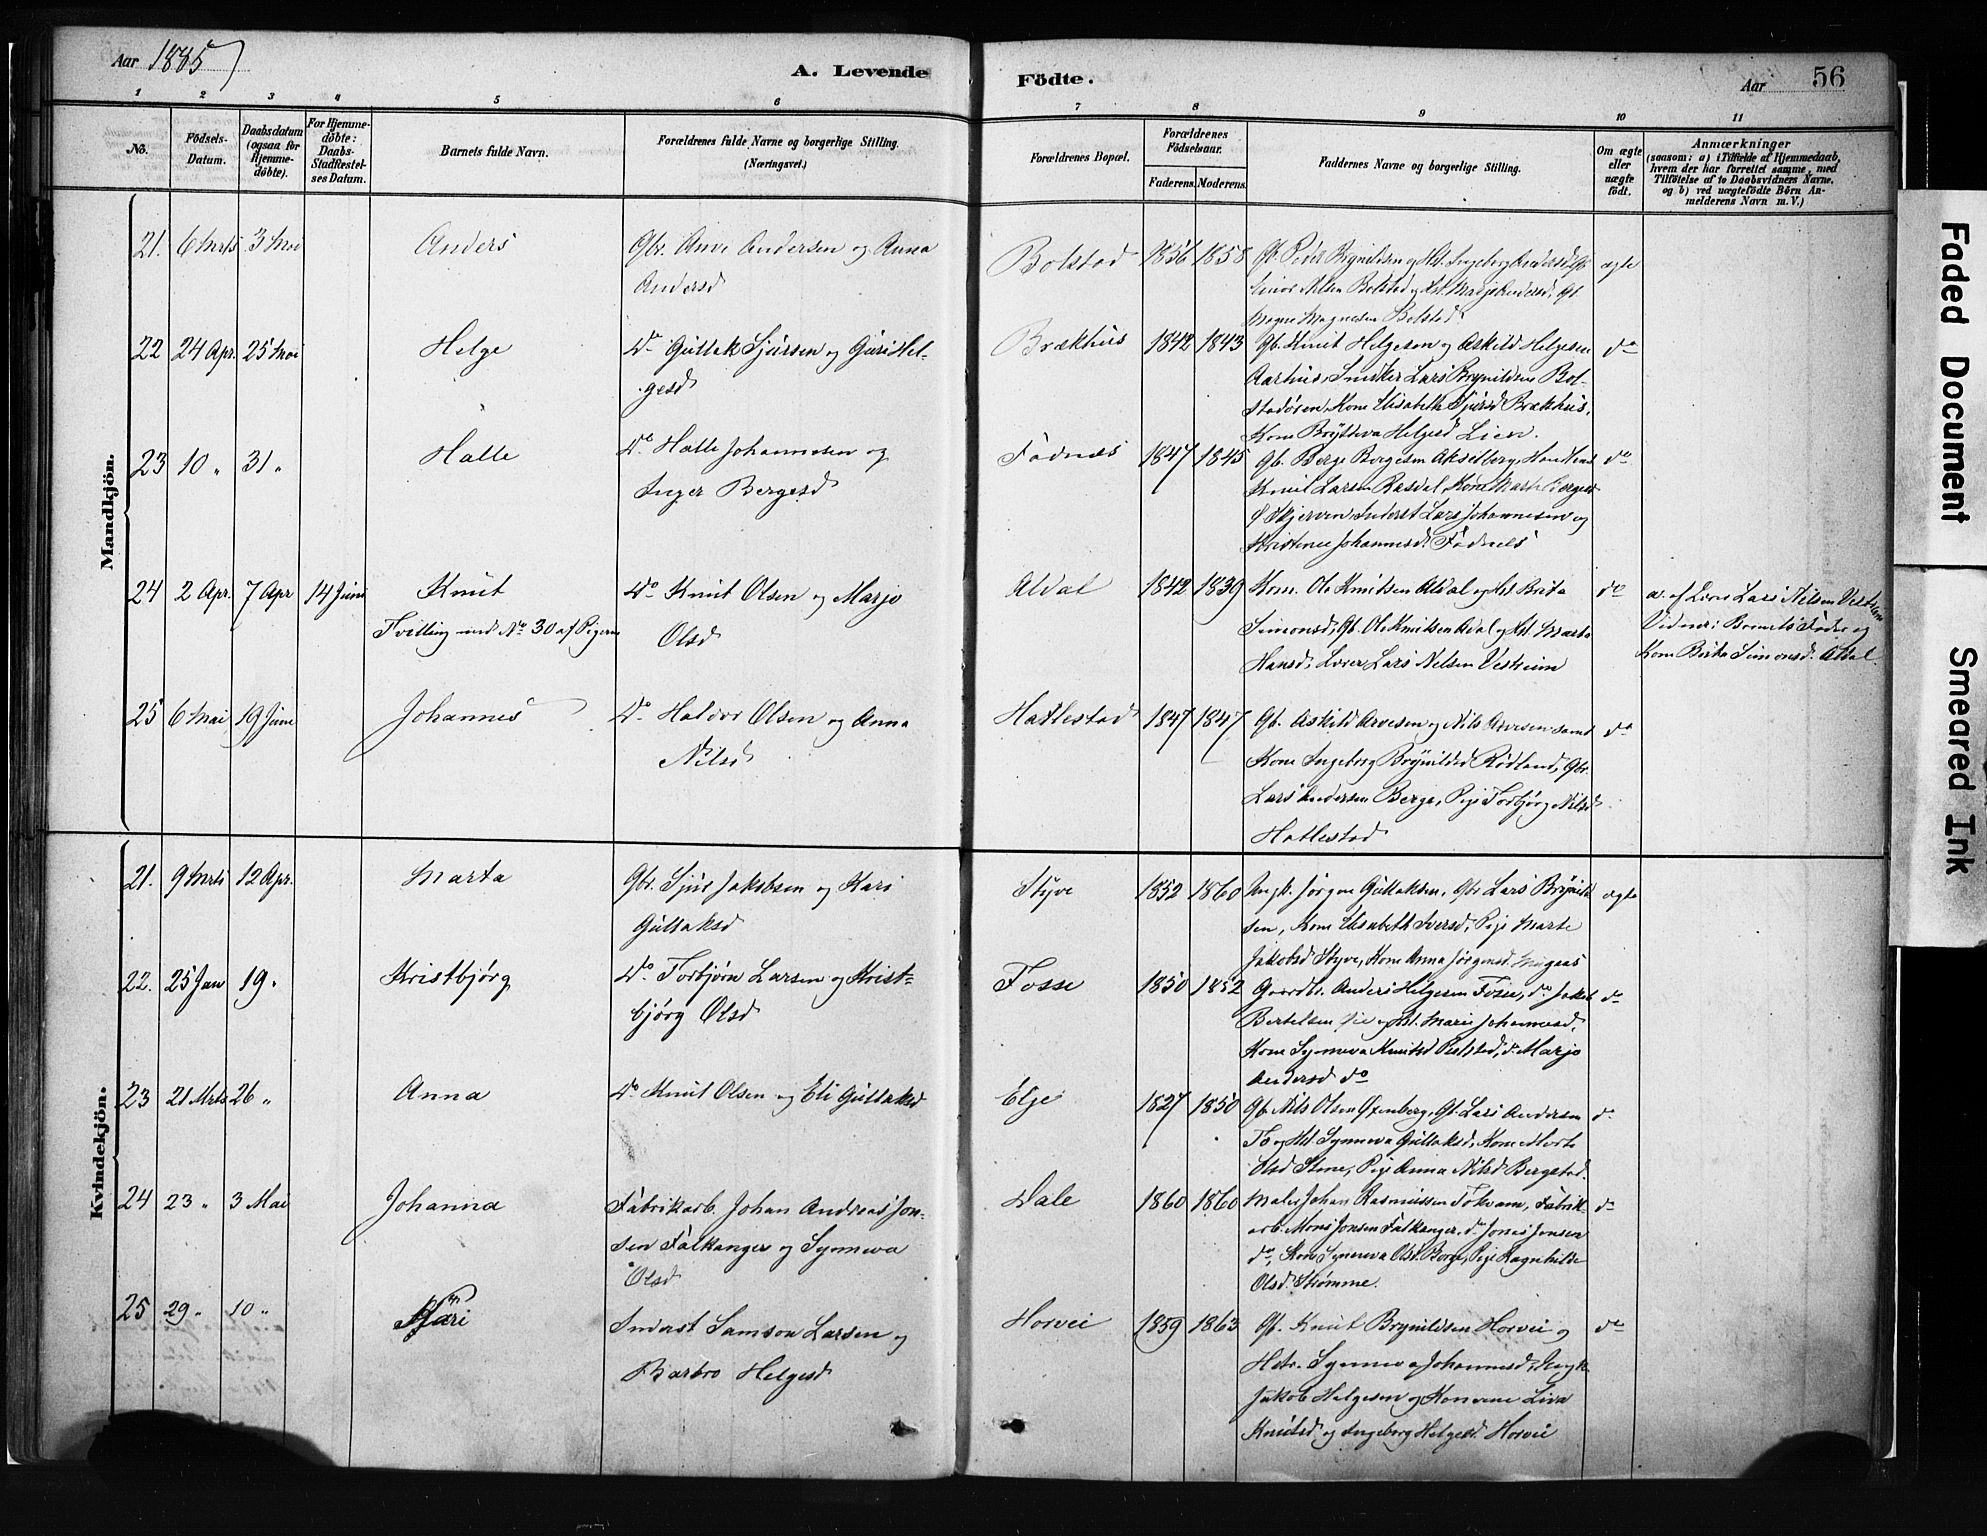 Aar 1885
A. Levende
Födte.
Aar
56
1 2 3 4 5 6 7 8 9 10 11
No.
Födsels-
Datum.
Daabsdatum
(ogsaa for
Hjemme-
döbte).
For Hjemme-
döbte:
Daabs-
Stadfæstel-
ses Datum.
Barnets fulde Navn.
Forældrenes fulde Navne og borgerlige Stilling.
(Næringsvei.)
Forældrenes Bopæl.
Forældrenes
Födselsaar.
Faderens. Moderens.
Faddernes Navne og borgerlige Stilling.
Om ægte
eller
uægte
födt.
Anmærkninger
(saasom: a) i Tilfælde af Hjemmedaab,
hvem der har forrettet samme, med
Tilföielse af to Daabsvidners Navne.
og b) ved uægtefödte Börn An-
melderens Navn m. V.)
Mandkjön.
21. 6 Mrts 3 Mai Anders
Gbr. Arne Andersen og Anna
Andersd
Bolstad 1856 1858
Gb. Peder Brynildsen og Hst. Ingeborg Andersd, Gb.
Einar Nilsen Bolstad og Hst. Marjo Andersd, Gb.
Magne Magnesen Bolstad.
ægte
22 24 Apr. 25 Mai Helge
Do Gullak Sjursen og Guri Hel-
gesd
Brækhus 1842 1843
Gb. Knut Helgesen og Askild Helgesen
Aarhus, Snedker Lars Brynildsen Bol-
stadøren, Kone Elisabeth Sjursd Brækhus,
Kone Brytteva Helgesd Lien.
do
23 10 " 31 " Halle
Do Halle Johannesen og
Inger Bergesd
Fadnes 1847 1845
Gb. Berge Bergesen Akselberg,
Knut Larsen Rasdal, Kone Marta Bergesd
Skjerven, Inderst Lars Johannesen og
Kristense Johannesd. Fadnes
do
24 2 Apr. 7 Apr 14 Juni Knut
Tvilling med No 30 af Pigerne
Do Knut Olsen og Marjo
Olsd
Aldal 1842 1839
Kom. Ole Knutsen Aldal og Hst. Brita
Simonsd, Gb. Ole Knutsen Aldal og Hst. Marta
Hansd, Lærer Lars Nilsen Vestheim
do
a. af Lærer Lars Nilsen Vestheim
Vidner: Barnets Fader og
Kone Brita Simonsd. Aldal.
25 6 Mai 19 Juni Johannes
Do Haldor Olsen og Anna
Nilsd
Hatlestad 1847 1847
Gb. Askild Arvesen og Nils Arvesen samt
Kone Ingeborg Brynildsd Rødland, Gbr.
Lars Andersen Berge, Pige Torbjørg Nilsd
Hatlestad
do
Kvindekjön.
21. 9 Mrts 12 Apr. Marta
Gbr. Sjur Jakobsen og Kari
Gullaksd
Styve 1852 1860
Ungk. Jørgen Gullaksen, Gbr Lars Brynild-
sen, Kone Elisabeth Iversd, Pige Marte
Jakobsd Styve, Kone Anna Jørgensd. Mugaas
ægte
22. 25 Jan 19 " Kristbjørg
Do Torbjørn Larsen og Krist-
bjørg Olsd
Fosse 1850 1852
Gaardbr. Anders Helgesen Fosse, do Jakob
Bertelsen og Hst. Marie Johannesd,
Kone Synneva Knutsd Bolstad, do Marjo
Andersd do
do
23 21 Mrts 26 " Anna
Do Knut Olsen og Eli Gullaksd
Elge 1827 1850
Gb. Nils Olsen Øxenberg, Gb. Lars Andersen
Fo og Hst. Synneva Gullaksd, Kone Marta
Olsd Stene, Pige Anna Nilsd Bergstad.
do
24 23 " 3 Mai Johanna
Fabrikarb. Johan Andreas Jon-
sen Falkanger og Synneva
Olsd
Dale 1860 1860
Maler Johan Rasmussen Tokvam, Fabrik-
arb. Mons Jonsen Falkanger, do Jonas Jonsen
do, Kone Synneva Olsd. Borge, Pige Ragnhilde
Olsd. Strømme.
do
25 29 " 10 " Kari
Inderst Samson Larsen og
Barbro Helgesd
Horvei 1859 1863
Gb. Knut Brynildsen Horvei og
Hstr. Synneva Johannesd, Ungk.
Jakob Helgesen og Konerne Liva
Knutsd og Ingeborg Helgesd. Horvei
do
Faded Document
Smeared Ink